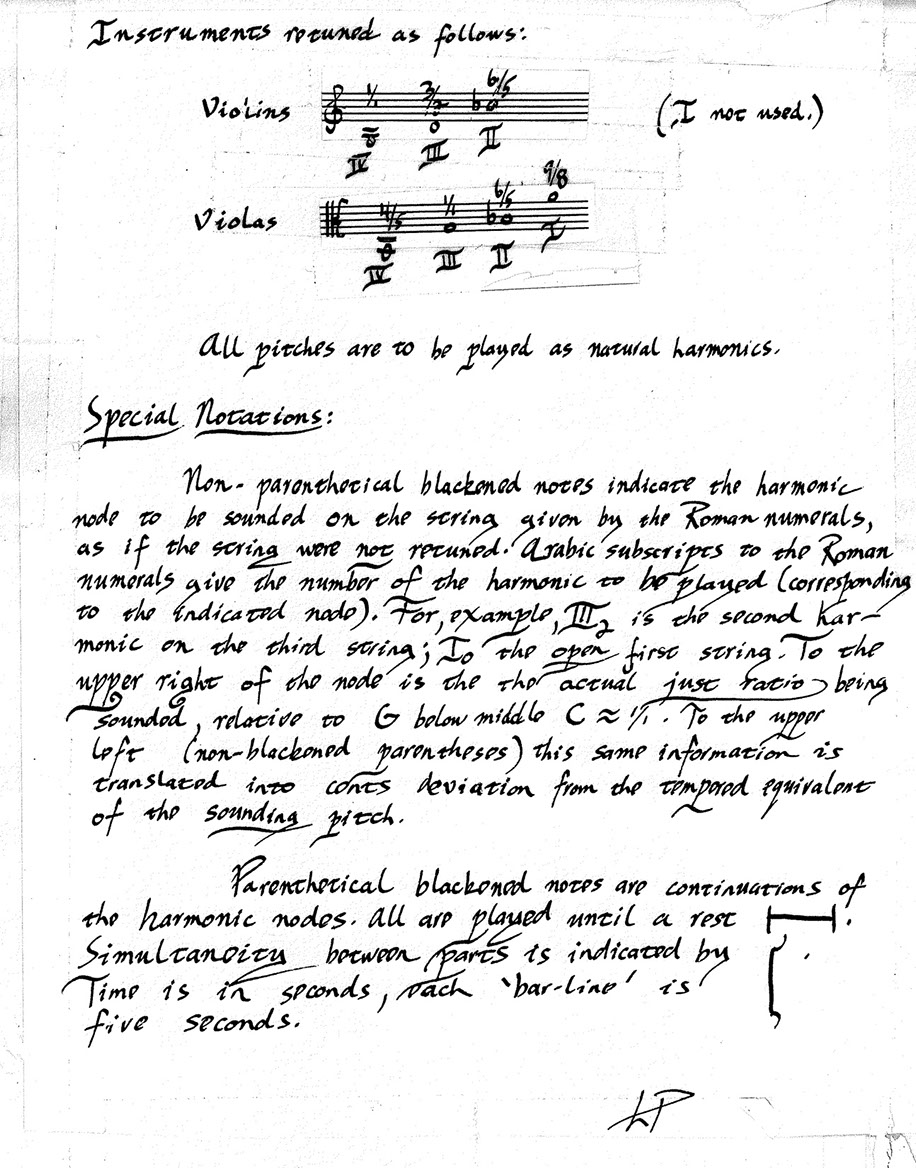 Instruments retuned as follows:
1/1 3/2 6/5
Violins (I not used.)
IV III II
4/5 1/1 6/5 9/8
Violas
IV III II I
All pitches are to be played as natural harmonics.
Special Notations:
Non-parenthetical blackened notes indicate the harmonic
node to be sounded on the string given by the Roman numerals,
as if the string were not retuned. Arabic subscripts to the Roman
numerals give the number of the harmonic to be played (corresponding
to the indicated node). For, example, III2 is the second har-
monic on the third string; I0 the open first string. To the
upper right of the node is the the actual just ratio being
sounded, relative to G below middle C ≈ 1/1. To the upper
left (non-blackened parentheses) this same information is
translated into cents deviation from the tempered equivalent
of the sounding pitch.
Parenthetical blackened notes are continuations of
the harmonic nodes. All are played until a rest
Simultaneity between parts is indicated by
Time is in seconds, each 'bar-line' is
five seconds.
LP